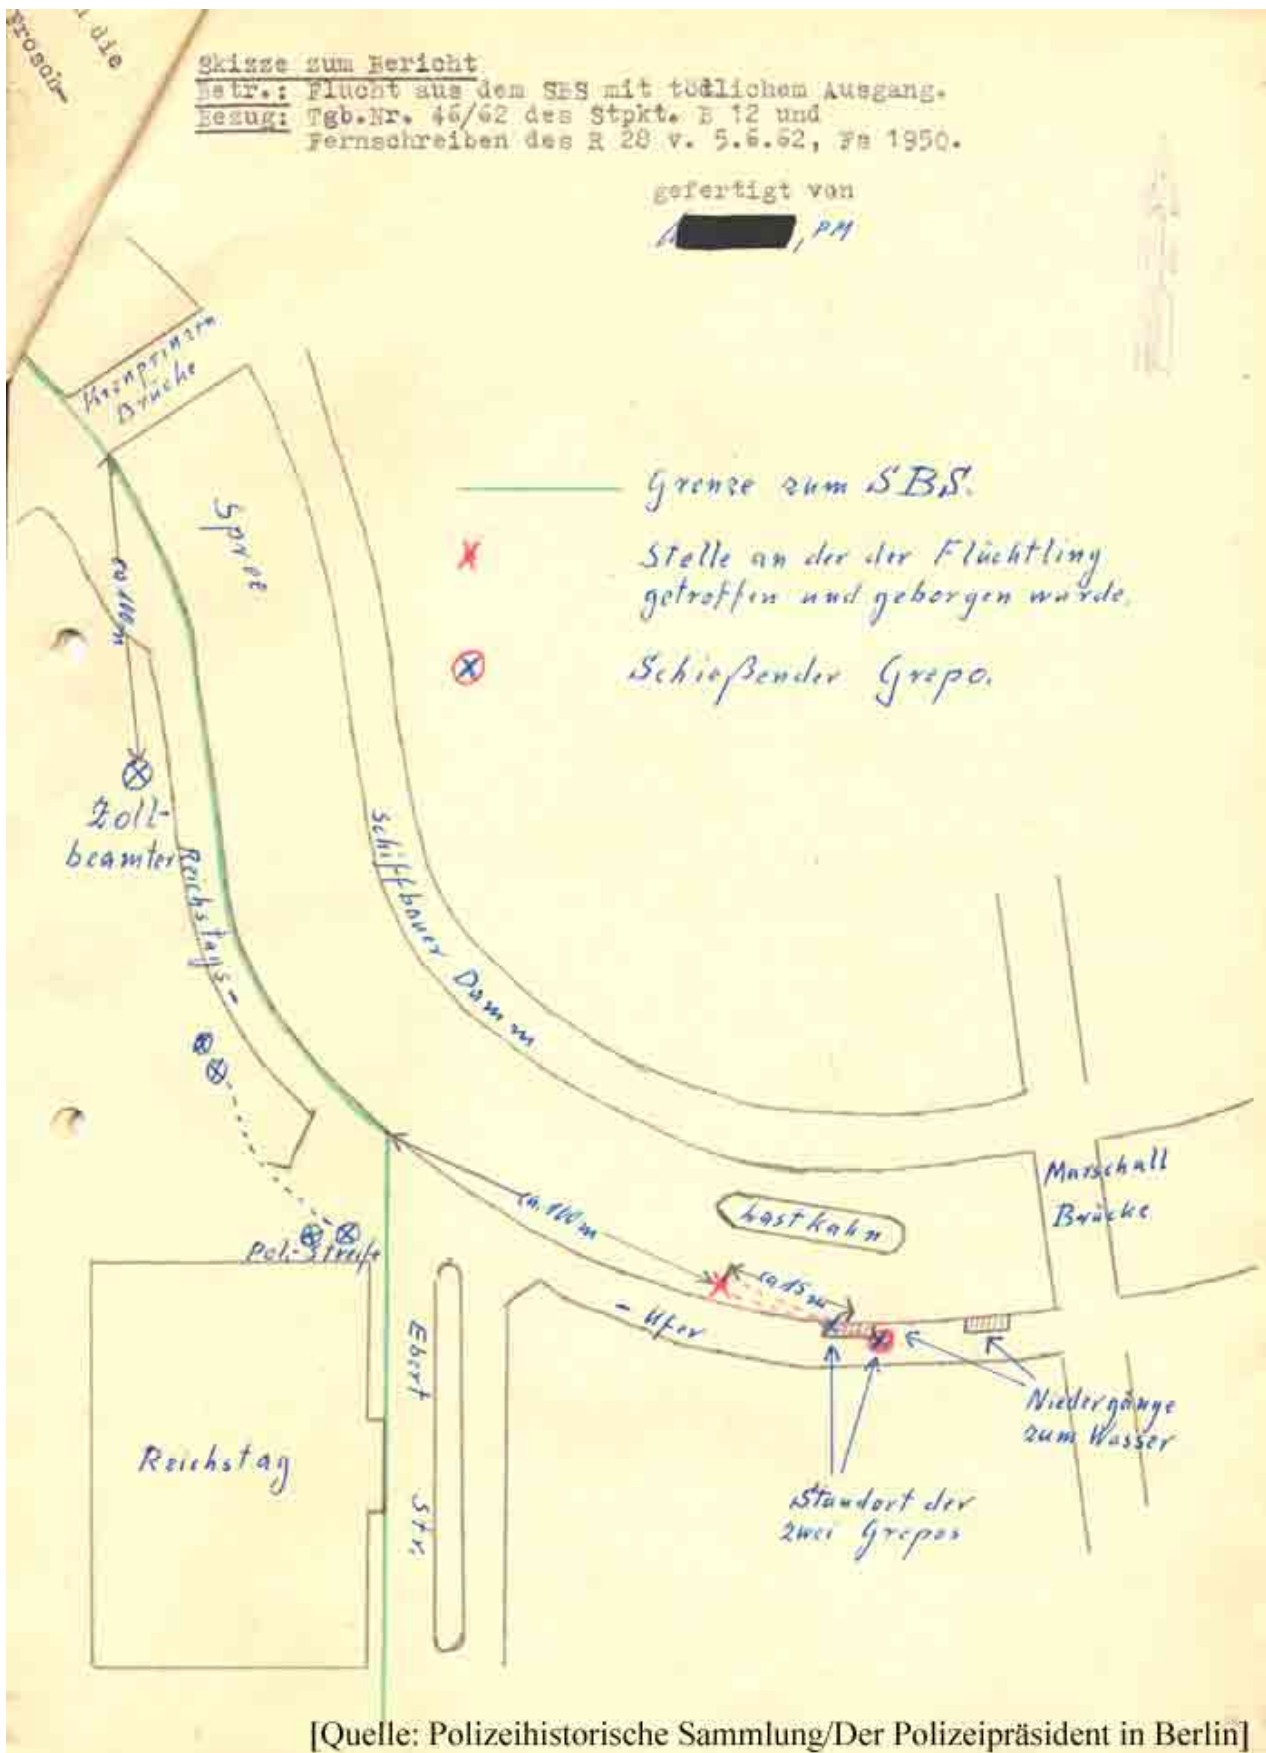 die
Frosch-
Skizze zum Bericht
Betr.: Flucht aus dem SBS mit tödlichem Ausgang.
Bezug: Tgb.Nr. 46/62 des Stpkt. B 12 und
Fernschreiben des R 28 v. 5.6.62, Fs 1950.
gefertigt von
, PM
Kronprinzen
Brücke
Spree
Grenze zum SBS.
Stelle an der der Flüchtling
getroffen und geborgen wurde.
Schießender Grepo.
ca 100m
Zoll-
beamter
Reichstags-
Schiffbauer Damm
Marschall
Brücke
Lastkahn
ca. 100 m
ca 15 m
Pol.-Streife
- Ufer
Ebert
Str.
Niedergänge
zum Wasser
Reichstag
Standort der
zwei Grepos
[Quelle: Polizeihistorische Sammlung/Der Polizeipräsident in Berlin]